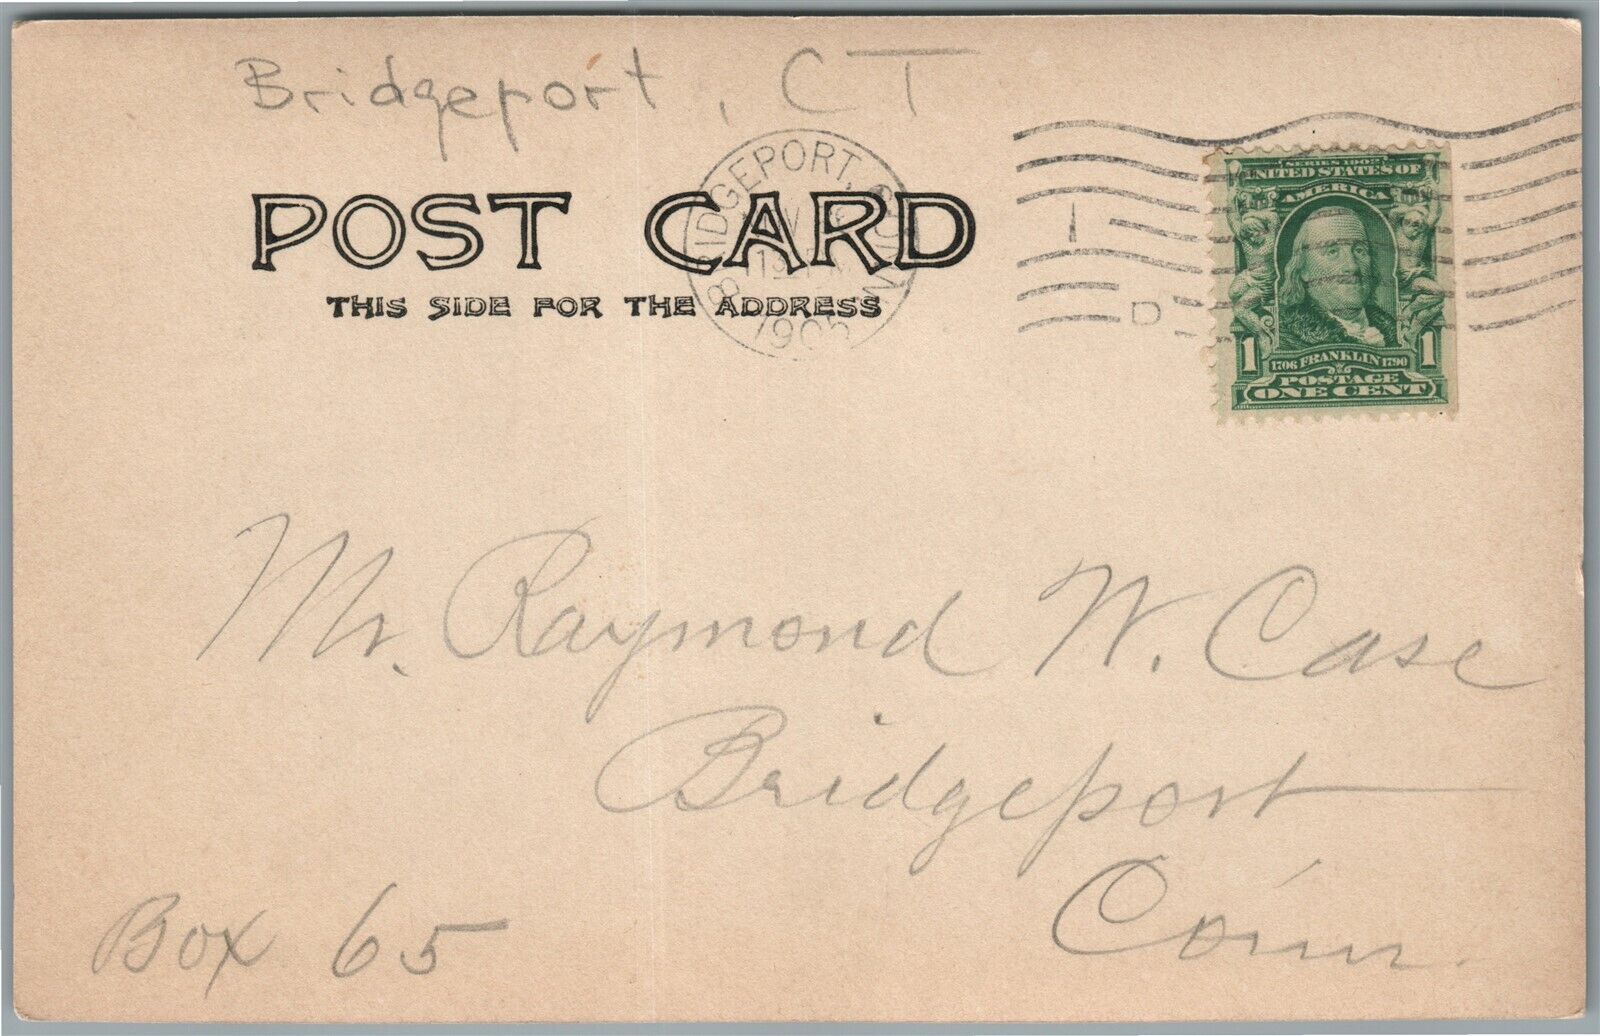 Bridgeport, CT
BRIDGEPORT, CONN.
1905
POST CARD
THIS SIDE FOR THE ADDRESS
1
D
SERIES 1902
UNITED STATES OF
AMERICA
1 1
1706 FRANKLIN 1790
POSTAGE
ONE CENT
Mr. Raymond W. Case
Bridgeport
Conn.
Box 65